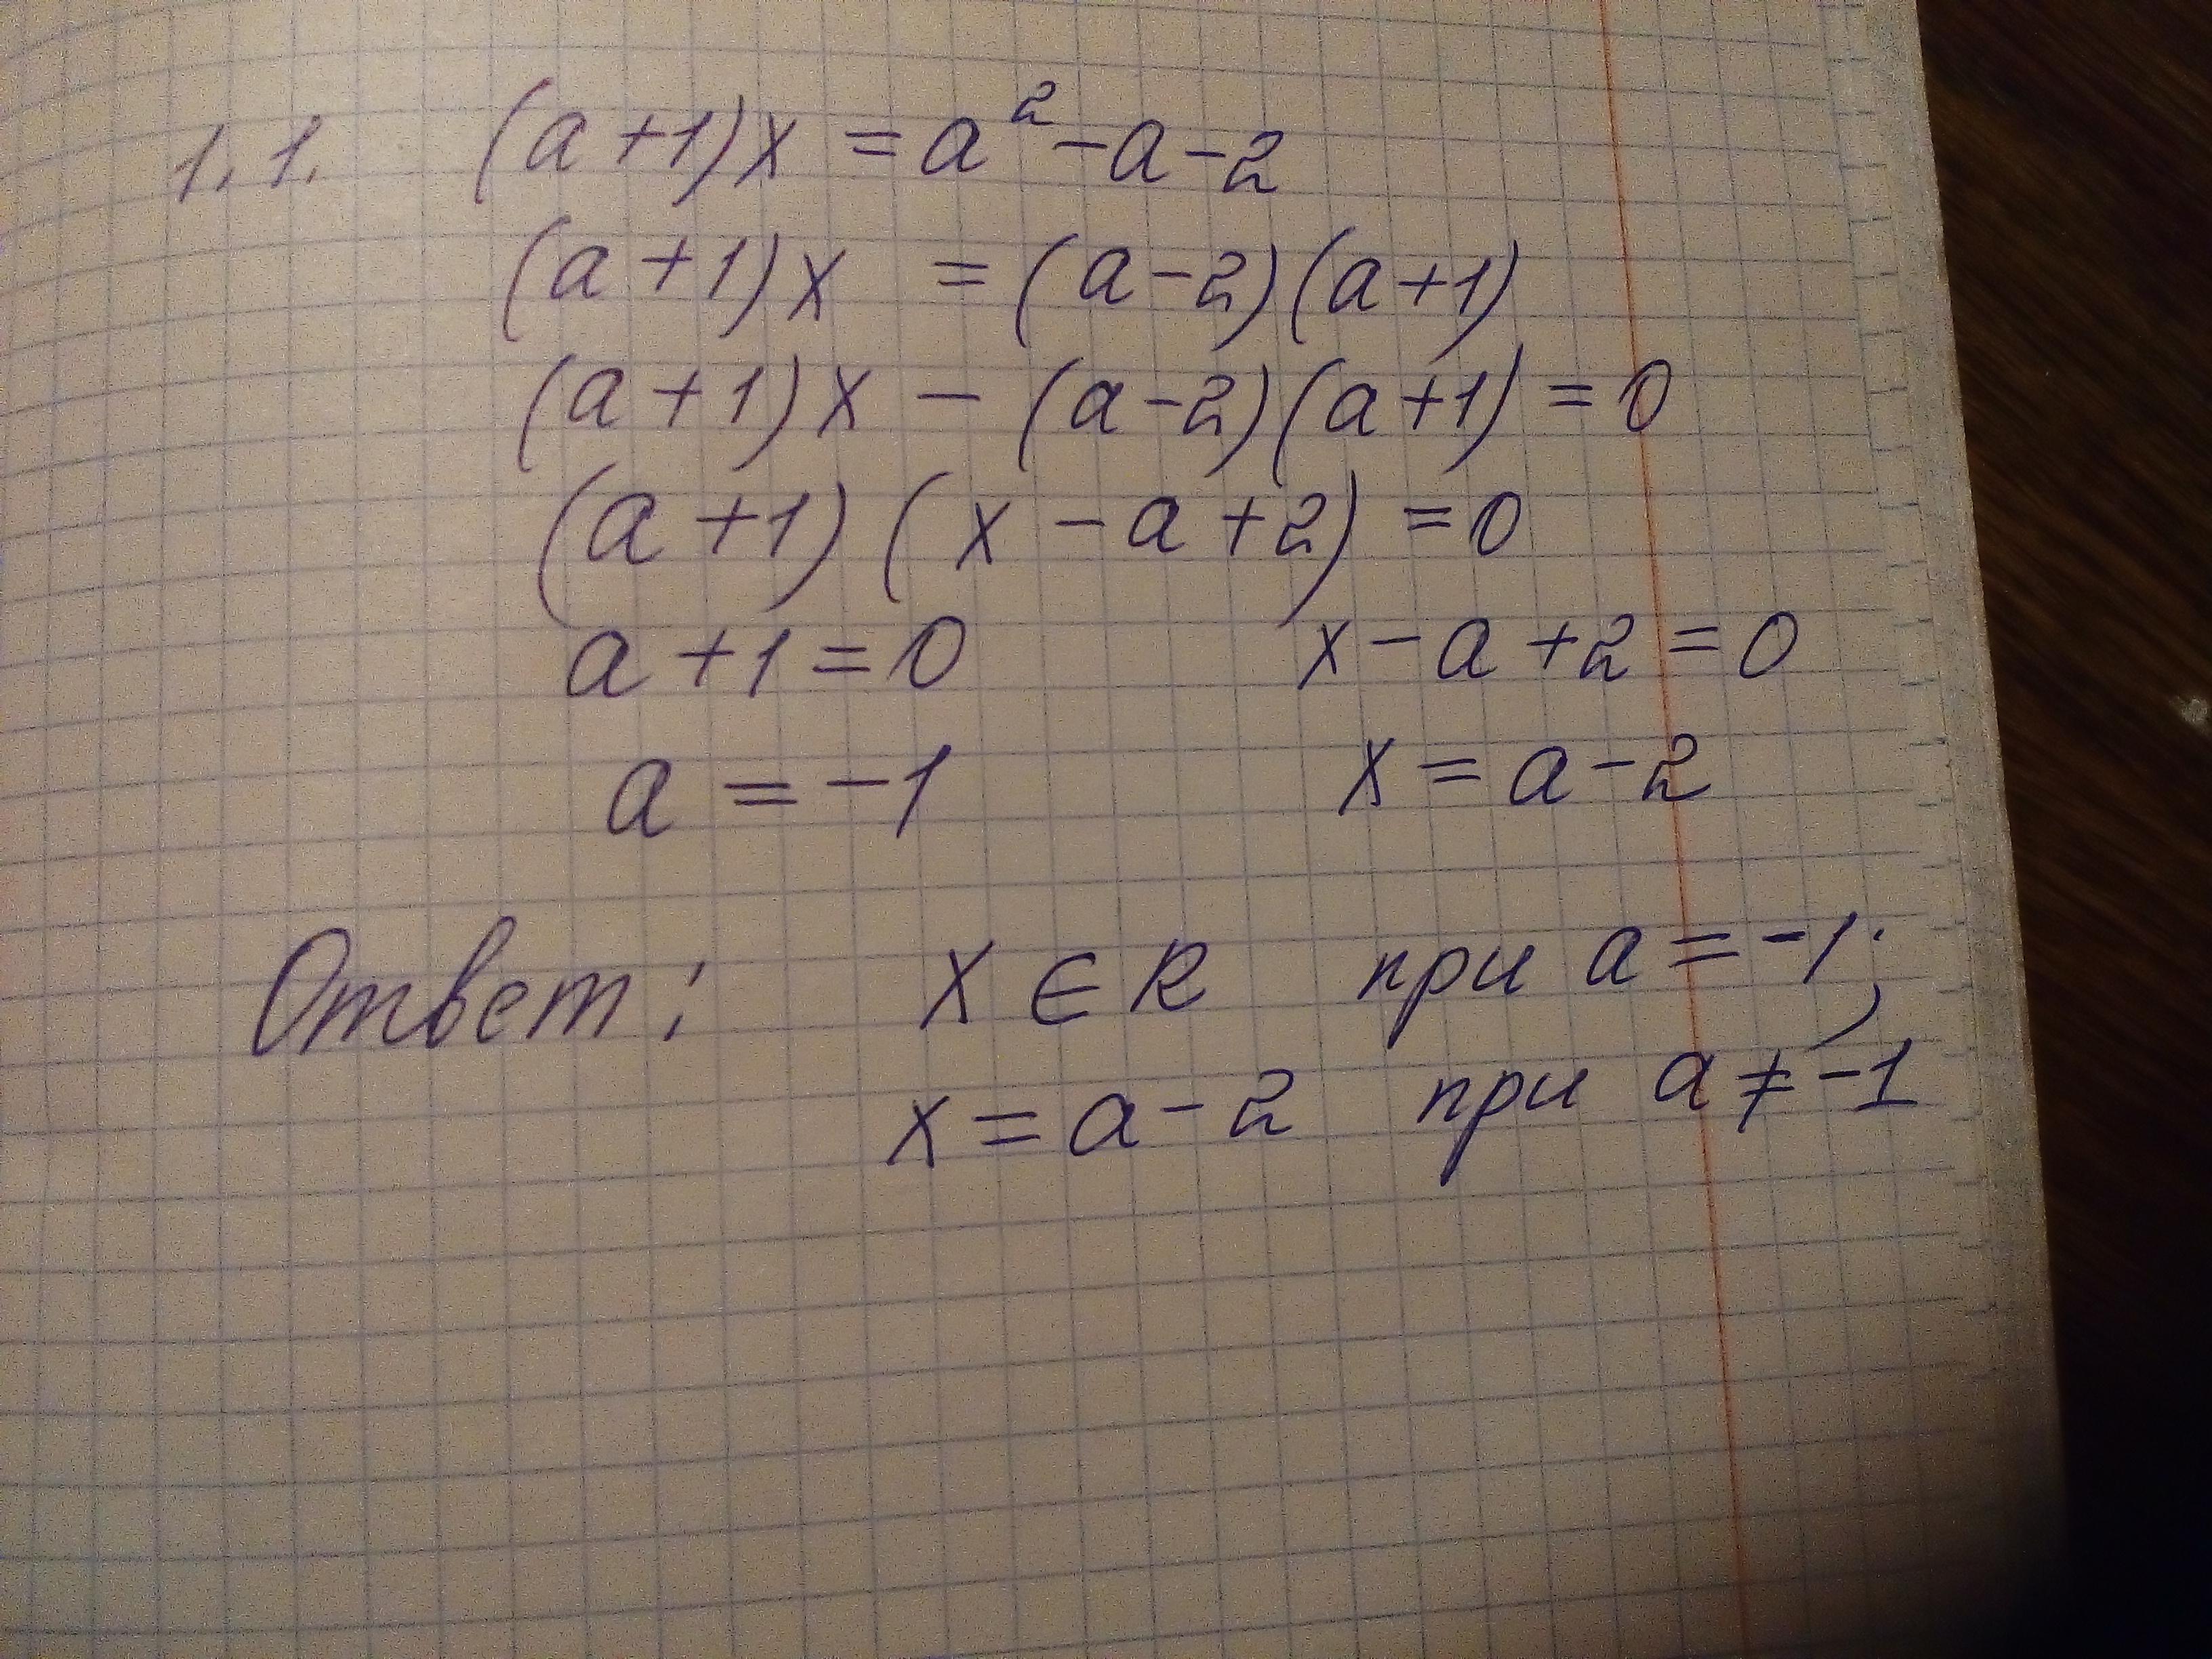 1.1. (a+1)x = a² - a - 2
(a+1)x = (a-2)(a+1)
(a+1)x - (a-2)(a+1) = 0
(a+1)(x - a + 2) = 0
a + 1 = 0 x - a + 2 = 0
a = -1 x = a - 2
Ответ: x ∈ R при a = -1;
x = a - 2 при a ≠ -1